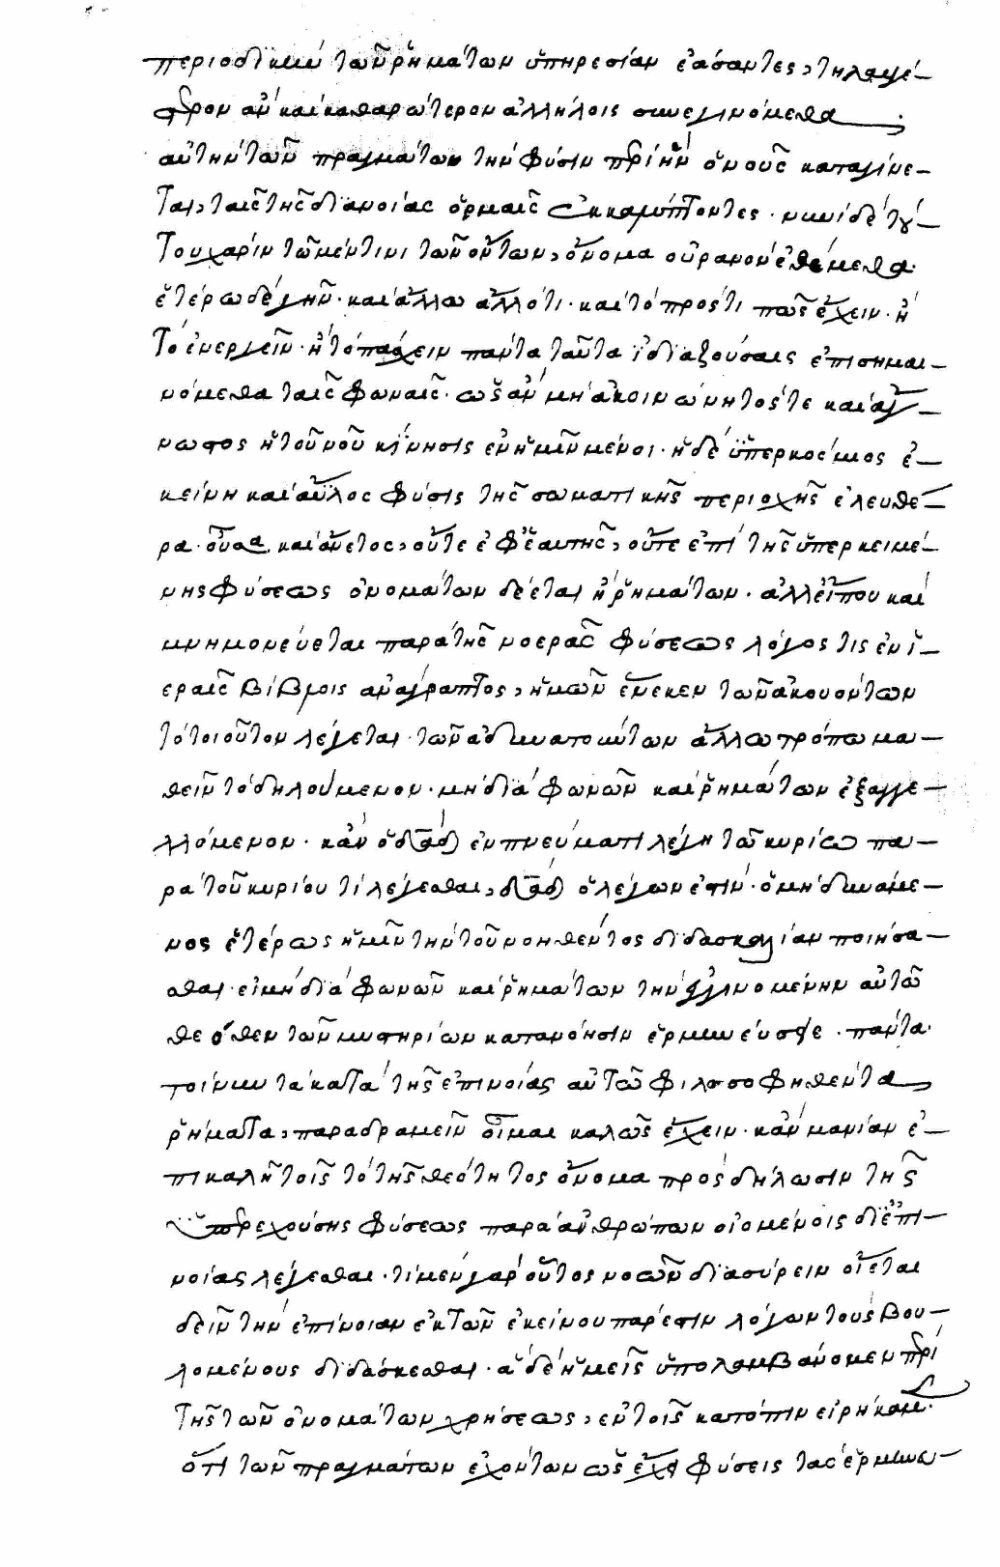 περιοδικὴν τῶν ῥημάτων ὑπηρεσίαν ἐάσαντες, τηλαυγέ-
στερον ἂν καὶ καθαρώτερον ἀλλήλοις συνεγινόμεθα
αὐτὴν τῶν πραγμάτων τὴν φύσιν περὶ ἣν ὁ νοῦς καταγίνε-
ται, ταῖς τῆς διανοίας ὁρμαῖς ἐκκαλύπτοντες. νυνὶ δὲ τού-
του χάριν τῶ μέν τινι τῶν ὄντων, ὄνομα οὐρανὸν ἐθέμεθα.
ἑτέρω δὲ γῆν. καὶ ἄλλω ἄλλό τι. καὶ τὸ πρός τι πῶς ἔχειν. ἢ
τὸ ἐνεργεῖν. ἢ τὸ πάσχειν πάντα ταῦτα ἰδιαζούσαις ἐπισημαι-
νόμεθα ταῖς φωναῖς. ὡς ἂν μὴ ἀκοινώνητός τε καὶ ἄγ-
νωστος ἡ τοῦ νοῦ κίνησις ἐν ἡμῖν μένοι. ἡ δὲ ὑπερκόσμιος ἐ-
κείνη καὶ ἄϋλος φύσις τῆς σωματικῆς περιοχῆς ἐλευθέ-
ρα. οὖσα καὶ ἄνετος, οὔτε ἐφ ἑαυτῆς, οὔτε ἐπὶ τῆς ὑπερκειμέ-
νης φύσεως ὀνομάτων δέεται ἢ ῥημάτων. ἀλλ εἴ που καὶ
μνημονεύεται παρὰ τῆς νοερᾶς φύσεως λόγος τις ἐν ἱ-
εραῖς βίβλοις ἀνάγραπτος, ἡμῶν ἕνεκεν τῶν ἀκουόντων
τὸ τοιοῦτον λέγεται. τῶν ἀδυνατούντων ἄλλω τρόπω μα-
θεῖν τὸ δηλούμενον. μὴ διὰ φωνῶν καὶ ῥημάτων ἐξαγγε-
λλόμενον. κἂν ὁ δᾱδ ἐν πνεύματι λέγη τῶ κυρίω πα-
ρὰ τοῦ κυρίου τὶ λέγεσθαι, δᾱδ ὁ λέγων ἐστίν. ὁ μὴ δυνάμε-
νος ἑτέρως ἡμῖν τὴν τοῦ νοηθέντος διδασκαλίαν ποιήσα-
σθαι. εἰ μὴ διὰ φωνῶν καὶ ῥημάτων τὴν ἐγγινομένην αὐτῶ
θεόθεν τῶν μυστηρίων κατανόησιν ἑρμηνεύσειε. πάντα
τοίνυν τὰ κατὰ τῆς ἐπινοίας αὐτῶ φιλοσοφηθέντα
ῥήματα, παραδραμεῖν οἶμαι καλῶς ἔχειν. κἂν μανίαν ἐ-
πικαλῆ τοῖς τὸ τῆς θεότητος ὄνομα πρὸς δήλωσιν τῆς
ὑπερεχούσης φύσεως παρὰ ἀνθρώπων οἰομένοις δι ἐπι-
νοίας λέγεσθαι. τί μὲν γὰρ οὗτος νοῶν διασύρειν οἴεται
δεῖν τὴν ἐπίνοιαν ἐκ τῶν ἐκείνου πάρεστιν λόγων τοὺς βου-
λομένους διδάσκεσθαι. ἃ δὲ ἡμεῖς ὑπολαμβάνομεν περὶ
τῆς τῶν ὀνομάτων χρήσεως, ἐν τοῖς κατόπιν εἰρήκαμεν.
ὅτι τῶν πραγμάτων ἐχόντων ὡς ἔχει φύσεις τὰς ἑρμηνευ-